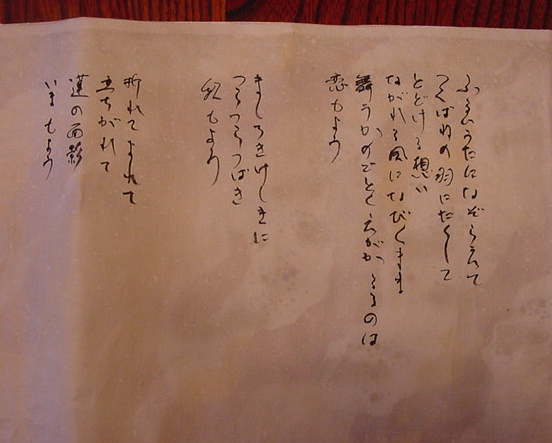 ふるいうたになぞらえて
つくばねの羽にたくして
とどける想い
ながれる風になびくまま
舞うかのごとく
恋もよう
きしろきけしきに
つらつらつばき
肌もよう
折れてよれて
立ちがれて
蓮の面影
いまもよう